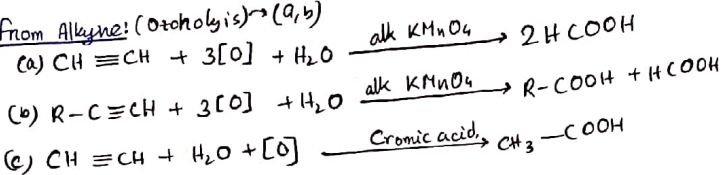 From Alkyne: (Otoholyis)→(a,b)
(a) CH ≡ CH + 3[O] + H₂O —alk KMnO₄→ 2HCOOH
(b) R-C≡CH + 3[O] + H₂O —alk KMnO₄→ R-COOH + HCOOH
(c) CH ≡ CH + H₂O + [O] —Cromic acid,→ CH₃—COOH